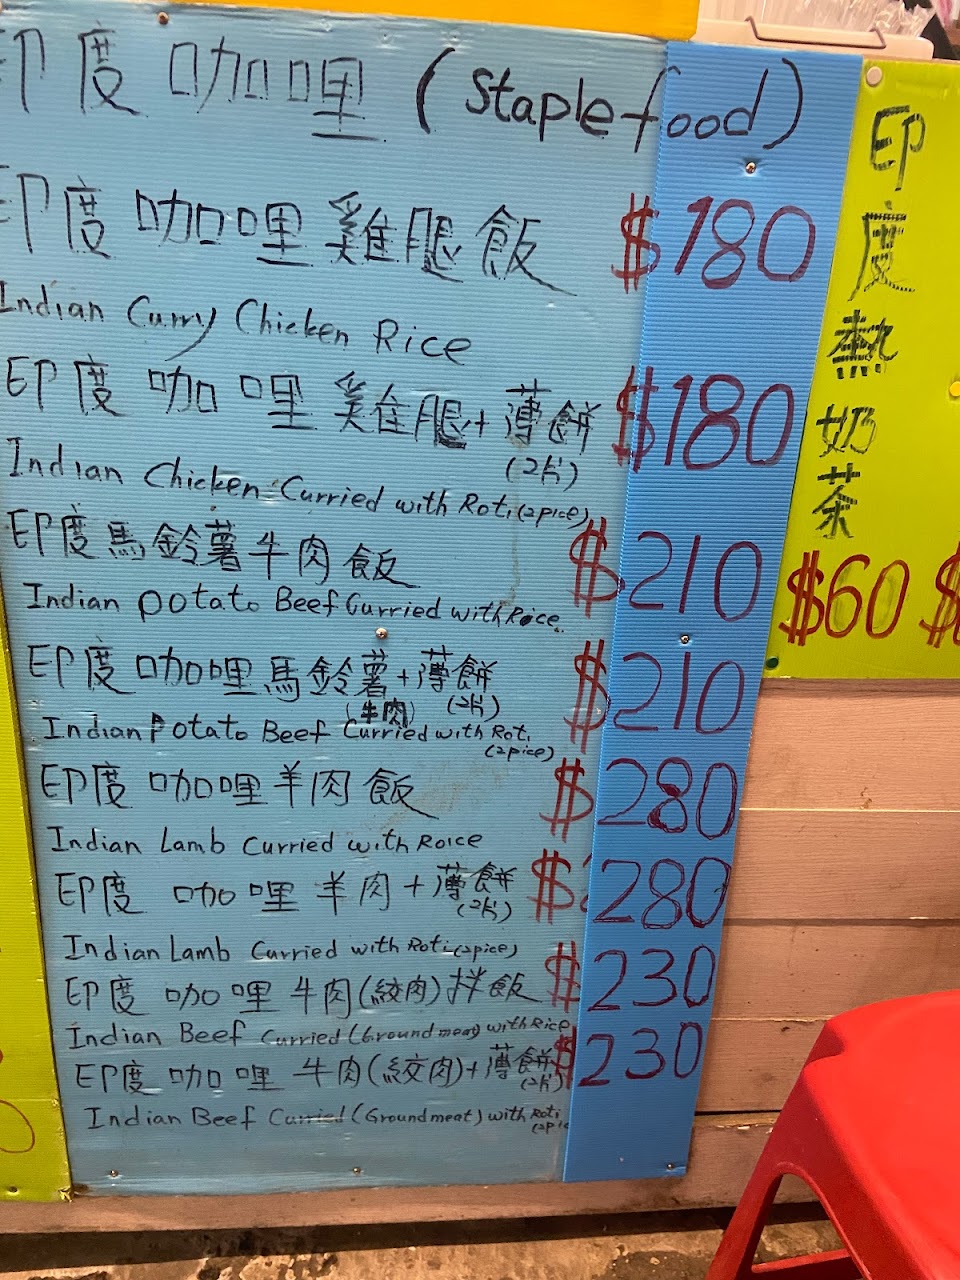 印度咖哩 (staple food)
印度咖哩雞腿飯 $180
Indian Curry Chicken Rice
印度咖哩雞腿+薄餅 $180
(2片)
Indian Chicken Curried with Roti (2pice)
印度馬鈴薯牛肉飯 $210
Indian potato Beef Curried with Roice
印度咖哩馬鈴薯+薄餅 $210
(牛肉) (2片)
Indian Potato Beef Curried with Roti
(2pice)
印度咖哩羊肉飯 $280
Indian Lamb Curried with Roice
印度咖哩羊肉+薄餅 $280
(2片)
Indian Lamb Curried with Roti (2pice)
印度咖哩牛肉(絞肉)拌飯 $230
Indian Beef Curried (Ground meat) with Rice
印度咖哩牛肉(絞肉)+薄餅 $230
(2片)
Indian Beef Curried (Ground meat) with Roti
印度熱奶茶
$60